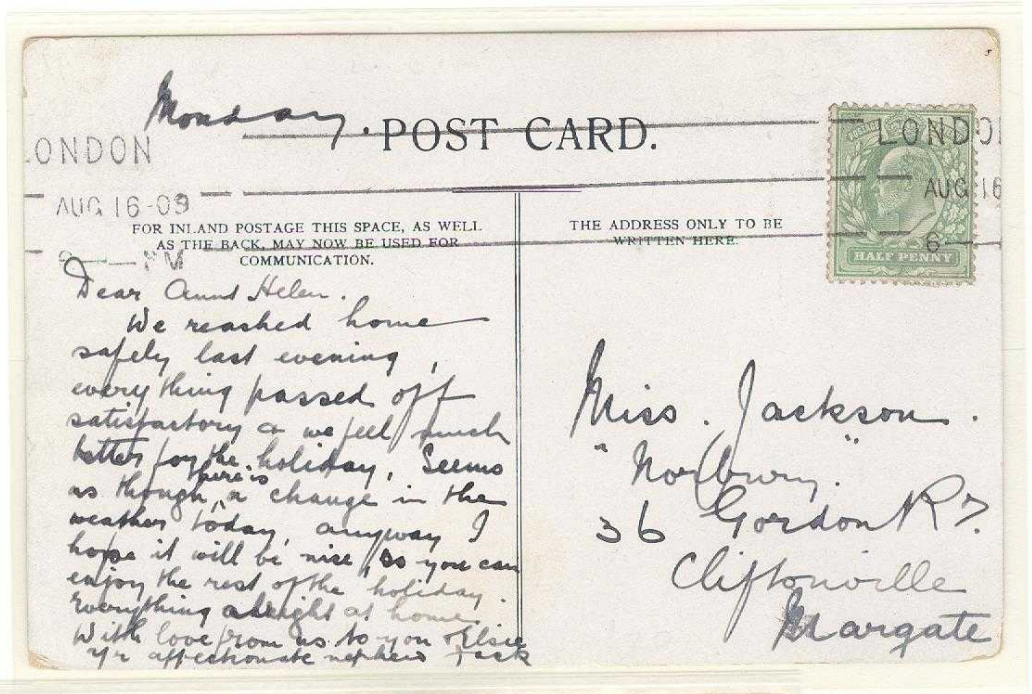 Monday.
POST CARD.
LONDON
AUG 16-09
6 — PM
LONDO
AUG 16
6 —
HALF PENNY
FOR INLAND POSTAGE THIS SPACE, AS WELL
AS THE BACK, MAY NOW BE USED FOR
COMMUNICATION.
THE ADDRESS ONLY TO BE
WRITTEN HERE.
Dear Aunt Helen.
We reached home
safely last evening,
everything passed off
satisfactory & we feel much
better for the holiday. Seems
as though there is a change in the
weather today, anyway I
hope it will be nice, so you can
enjoy the rest of the holiday.
Everything alright at home.
With love from us to you Elsie
Yr affectionate nephew Jack
Miss. Jackson.
"Norbury."
36 Gordon Rd.
Cliftonville
Margate